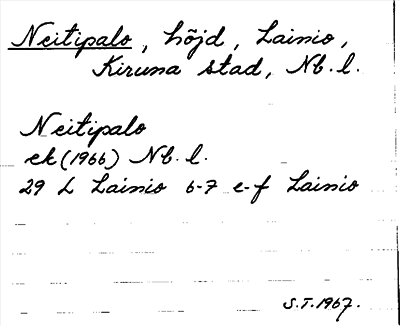 Neitipalo, höjd, Lainio,
Kiruna stad, Nb. l.
Neitipalo
ek (1966) Nb. l.
29 L Lainio 6-7 e-f Lainio
S.T. 1967.